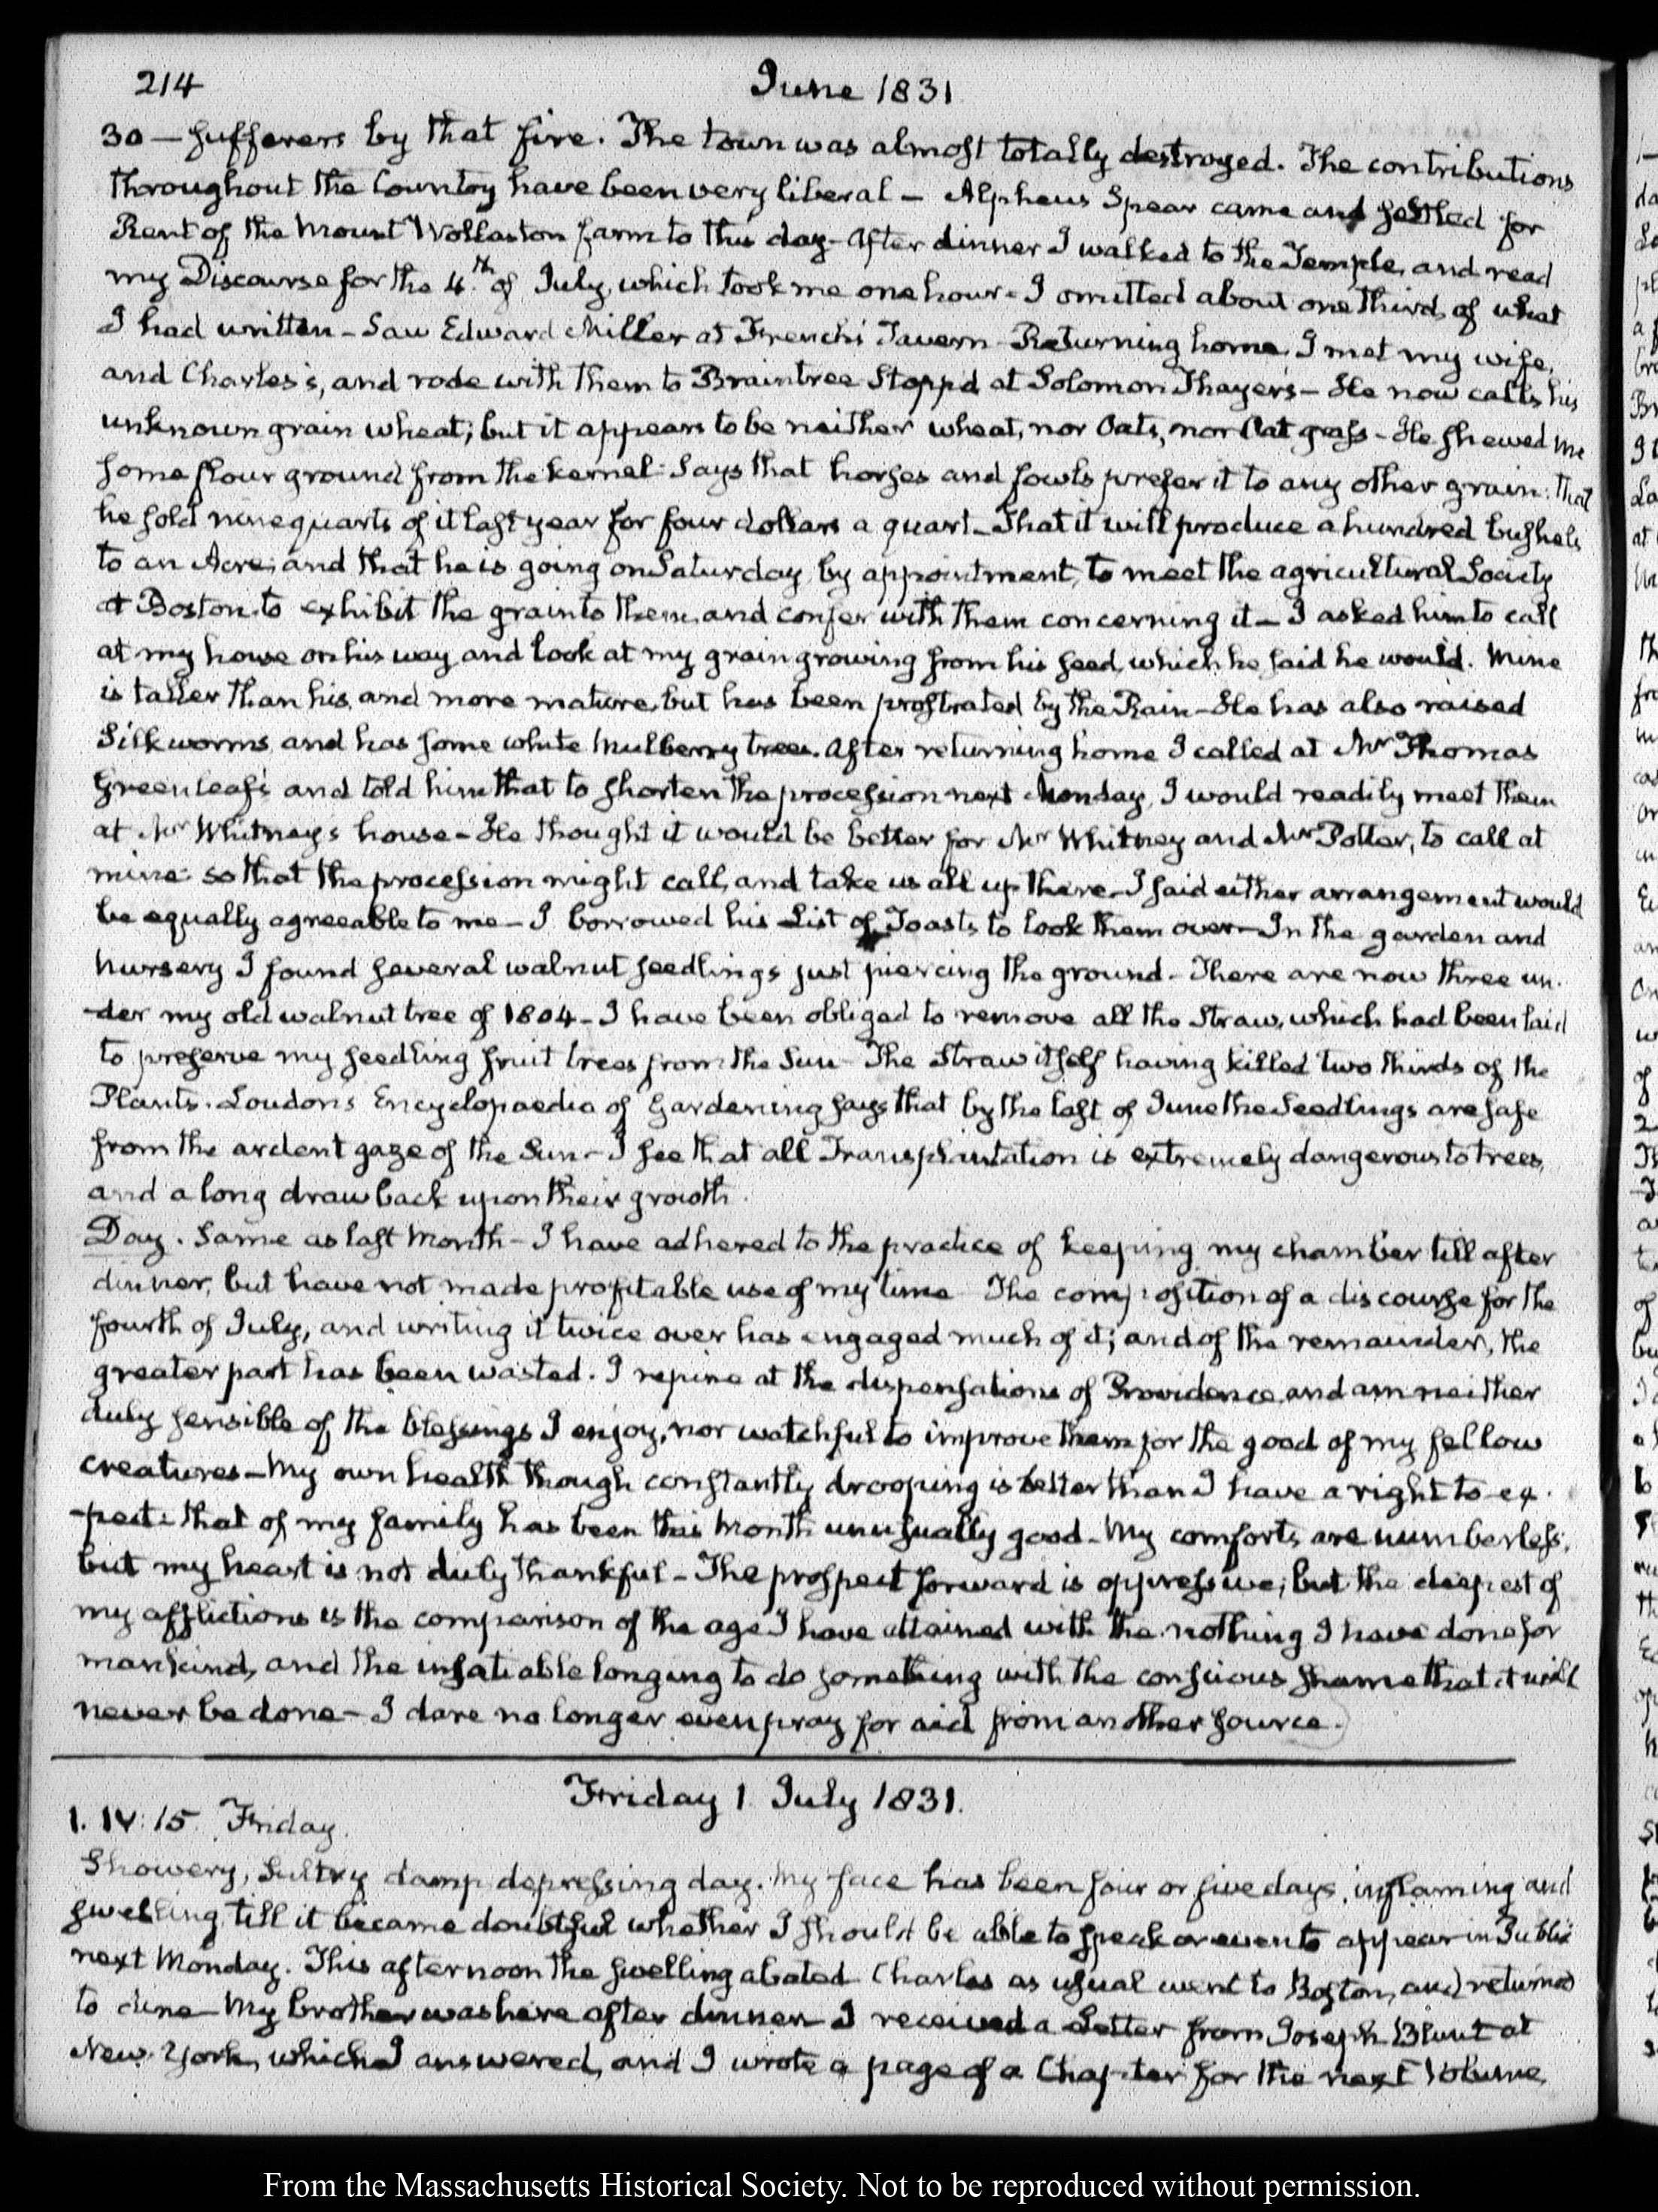 214
June 1831
30 — sufferers by that fire. The town was almost totally destroyed. The contributions
throughout the Country have been very liberal — Alpheus Spear came and settled for
Rent of the Mount Wollaston farm to this day — After dinner I walked to the Temple, and read
my Discourse for the 4.th of July, which took me one hour — I omitted about one third of what
I had written — Saw Edward Miller at French's Tavern — Returning home, I met my wife,
and Charles's, and rode with them to Braintree Stopp'd at Solomon Thayer's — He now calls his
unknown grain wheat; but it appears to be neither wheat, nor Oats, nor Oat grass — He shewed me
some flour ground from the kernel: Says that horses and fowls prefer it to any other grain: that
he sold nine quarts of it last year for four dollars a quart — That it will produce a hundred bushels
to an Acre; and that he is going on Saturday by appointment, to meet the agricultural Society
at Boston, to exhibit the grain to them, and confer with them concerning it — I asked him to call
at my house on his way, and look at my grain growing from his seed, which he said he would. Mine
is taller than his, and more mature, but has been prostrated by the Rain — He has also raised
Silk worms, and has some white Mulberry trees. After returning home I called at Mr Thomas
Greenleaf's and told him that to shorten the procession next Monday, I would readily meet them
at Mr Whitney's house — He thought it would be better for Mr Whitney and Mr Potter, to call at
mine: so that the procession might call, and take us all up there — I said either arrangement would
be equally agreeable to me — I borrowed his List of Toasts, to look them over — In the garden and
Nursery I found several walnut seedlings just piercing the ground — There are now three un-
-der my old walnut tree of 1804 — I have been obliged to remove all the Straw, which had been laid
to preserve my seedling fruit trees from the Sun — The Straw itself having killed two thirds of the
Plants. Loudon's Encyclopaedia of Gardening says that by the last of June the Seedlings are safe
from the ardent gaze of the Sun — I see that all Transplantation is extremely dangerous to trees,
and a long draw back upon their growth.
Day. Same as last Month — I have adhered to the practice of keeping my chamber till after
dinner, but have not made profitable use of my time The composition of a discourse for the
fourth of July, and writing it twice over has engaged much of it; and of the remainder, the
greater part has been wasted. I repine at the dispensations of Providence, and am neither
duly sensible of the blessings I enjoy, nor watchful to improve them for the good of my fellow
creatures — My own health though constantly drooping is better than I have a right to ex-
-pect: that of my family has been this Month unusually good — My comforts are numberless;
but my heart is not duly thankful — The prospect forward is oppressive; but the deepest of
my afflictions is the comparison of the age I have attained with the nothing I have done for
mankind, and the insatiable longing to do something with the conscious shame that it will
never be done — I dare no longer even pray for aid from another source.
Friday 1. July 1831.
1. IV: 15. Friday.
Showery, Sultry damp depressing day. My face has been four or five days, inflaming and
swelling, till it became doubtful whether I should be able to speak or even to appear in Public
next Monday. This afternoon the swelling abated Charles as usual went to Boston, and returned
to dine — My brother was here after dinner — I received a Letter from Joseph Blunt at
New-York, which I answered, and I wrote a page of a Chapter for the next Volume,
From the Massachusetts Historical Society. Not to be reproduced without permission.